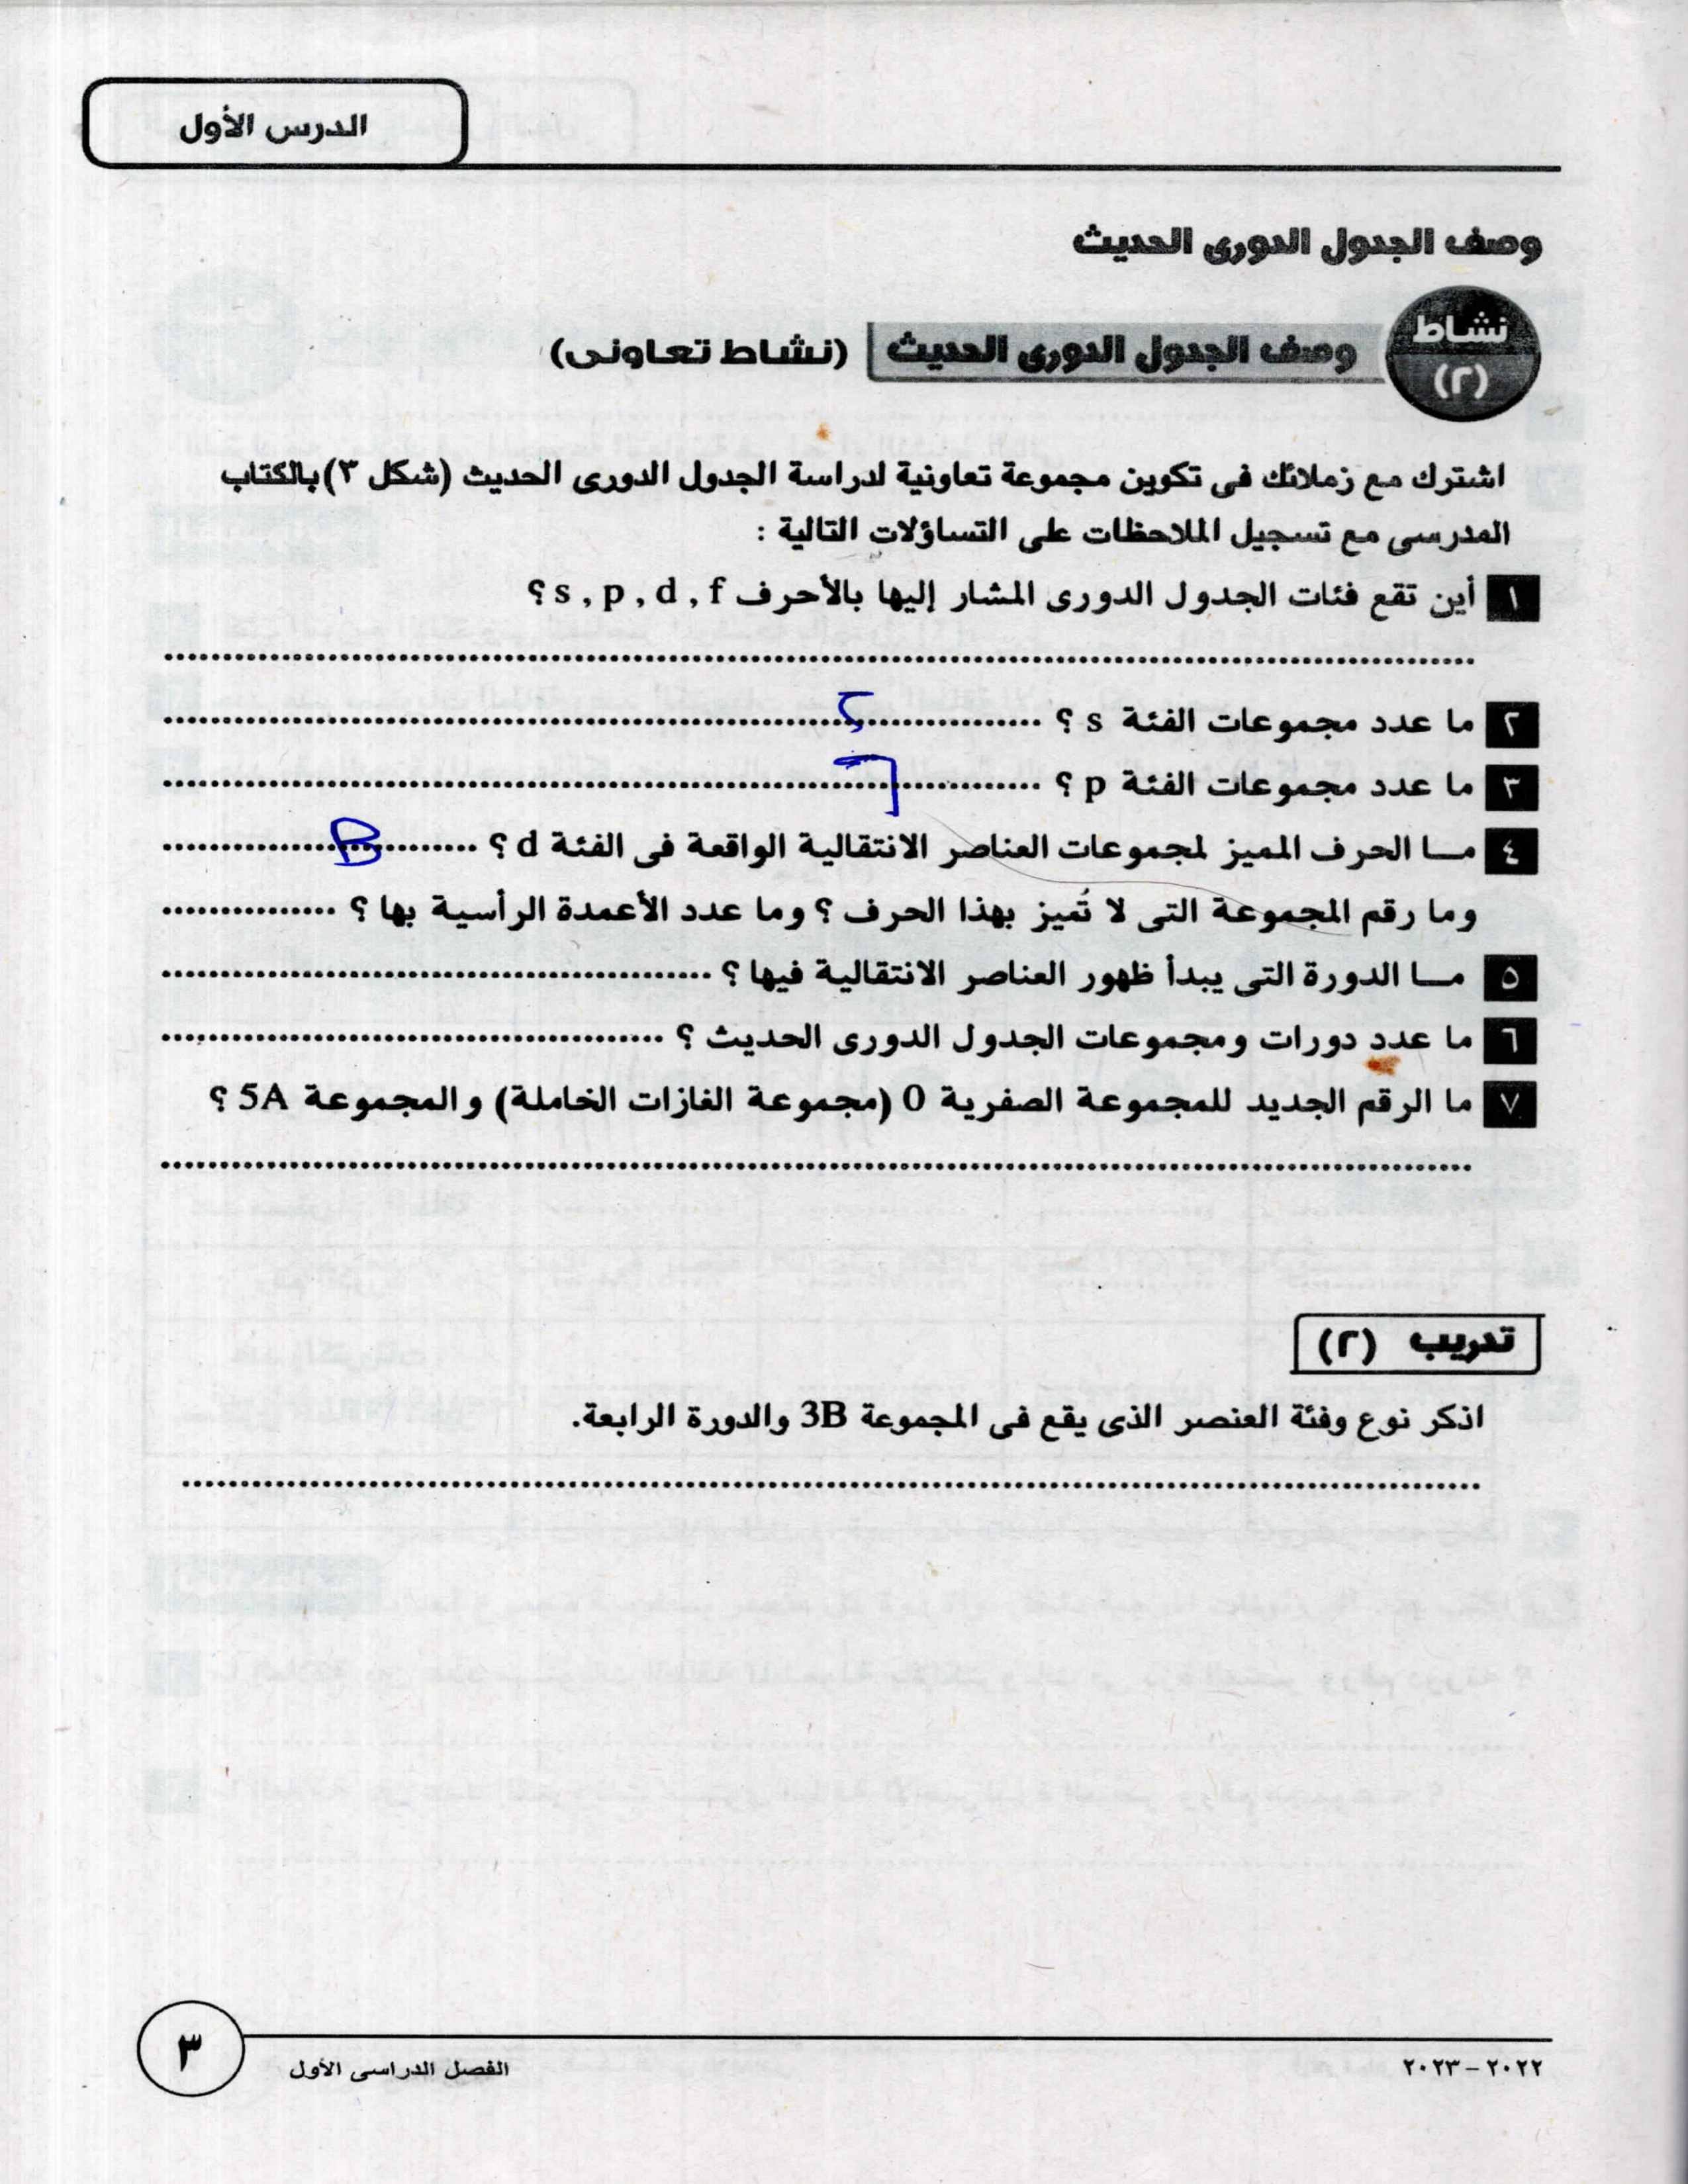 الدرس الأول
وصف الجدول الدورى الحديث
نشاط (٢) وصف الجدول الدورى الحديث (نشاط تعاونى)
اشترك مع زملائك فى تكوين مجموعة تعاونية لدراسة الجدول الدورى الحديث (شكل ٣) بالكتاب
المدرسى مع تسجيل الملاحظات على التساؤلات التالية :
١ أين تقع فئات الجدول الدورى المشار إليها بالأحرف s , p , d , f ؟
٢ ما عدد مجموعات الفئة s ؟ ٢
٣ ما عدد مجموعات الفئة p ؟ ٦
٤ مـا الحرف المميز لمجموعات العناصر الانتقالية الواقعة فى الفئة d ؟ B
وما رقم المجموعة التى لا تُميز بهذا الحرف ؟ وما عدد الأعمدة الرأسية بها ؟
٥ مـا الدورة التى يبدأ ظهور العناصر الانتقالية فيها ؟
٦ ما عدد دورات ومجموعات الجدول الدورى الحديث ؟
٧ ما الرقم الجديد للمجموعة الصفرية 0 (مجموعة الغازات الخاملة) والمجموعة 5A ؟
تدريب (٢)
اذكر نوع وفئة العنصر الذى يقع فى المجموعة 3B والدورة الرابعة.
٢٠٢٢ – ٢٠٢٣
الفصل الدراسى الأول
٣